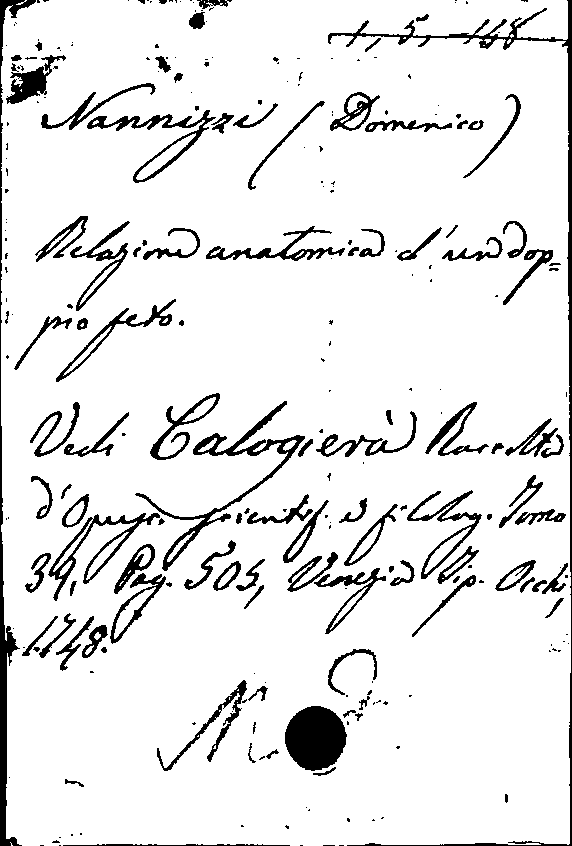 1, 5, 148
Nannizzi (Domenico)
Relazione anatomica d'un dop=
pio feto.
Vedi Calogierà Raccolta
d'Opusc. scientif. e filolog. Tomo
39, Pag. 505, Venezia Tip. Occhi,
1748.
N